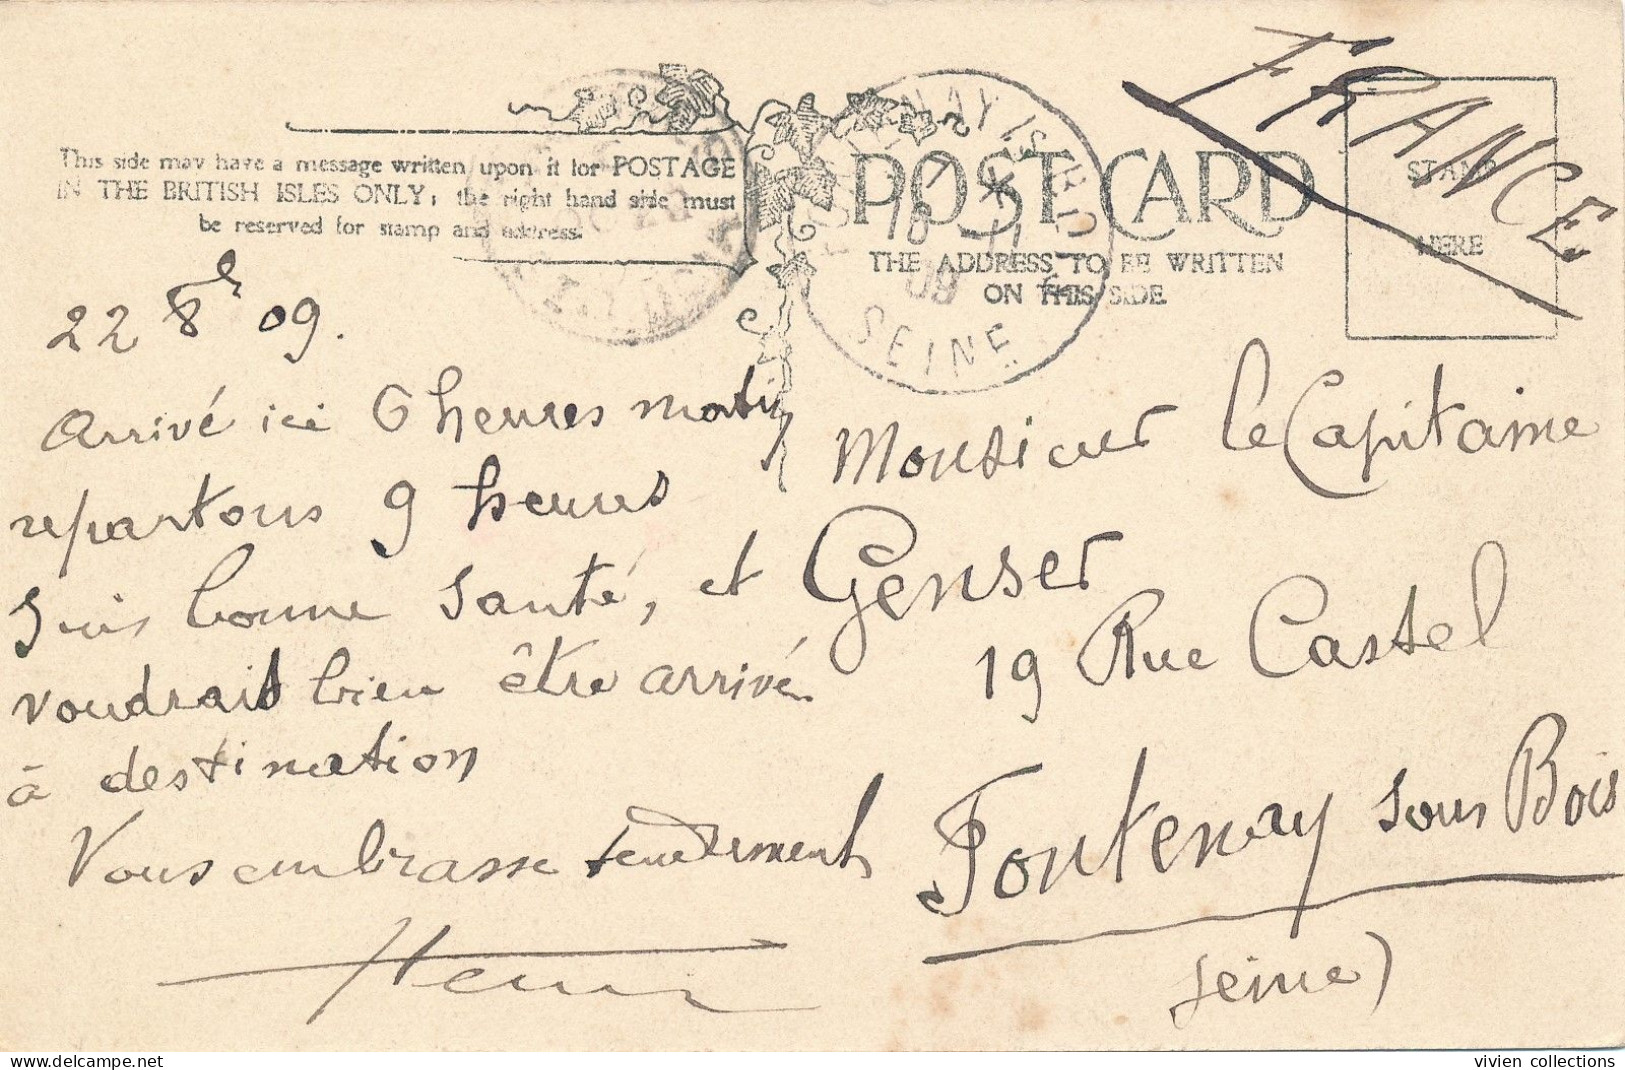 FRANCE
This side may have a message written upon it for POSTAGE
IN THE BRITISH ISLES ONLY; the right hand side must
be reserved for stamp and address.
POST CARD
THE ADDRESS TO BE WRITTEN
ON THIS SIDE
STAMP
HERE
SEINE
22 8bre 09.
Arrivé ici 6 heures matin
repartons 9 heures
Suis bonne santé, et
voudrais bien être arrivé
à destination
Vous embrasse tendrement
Monsieur le Capitaine
Genser
19 Rue Castel
Fontenay sous Bois
Seine)
vivien collections